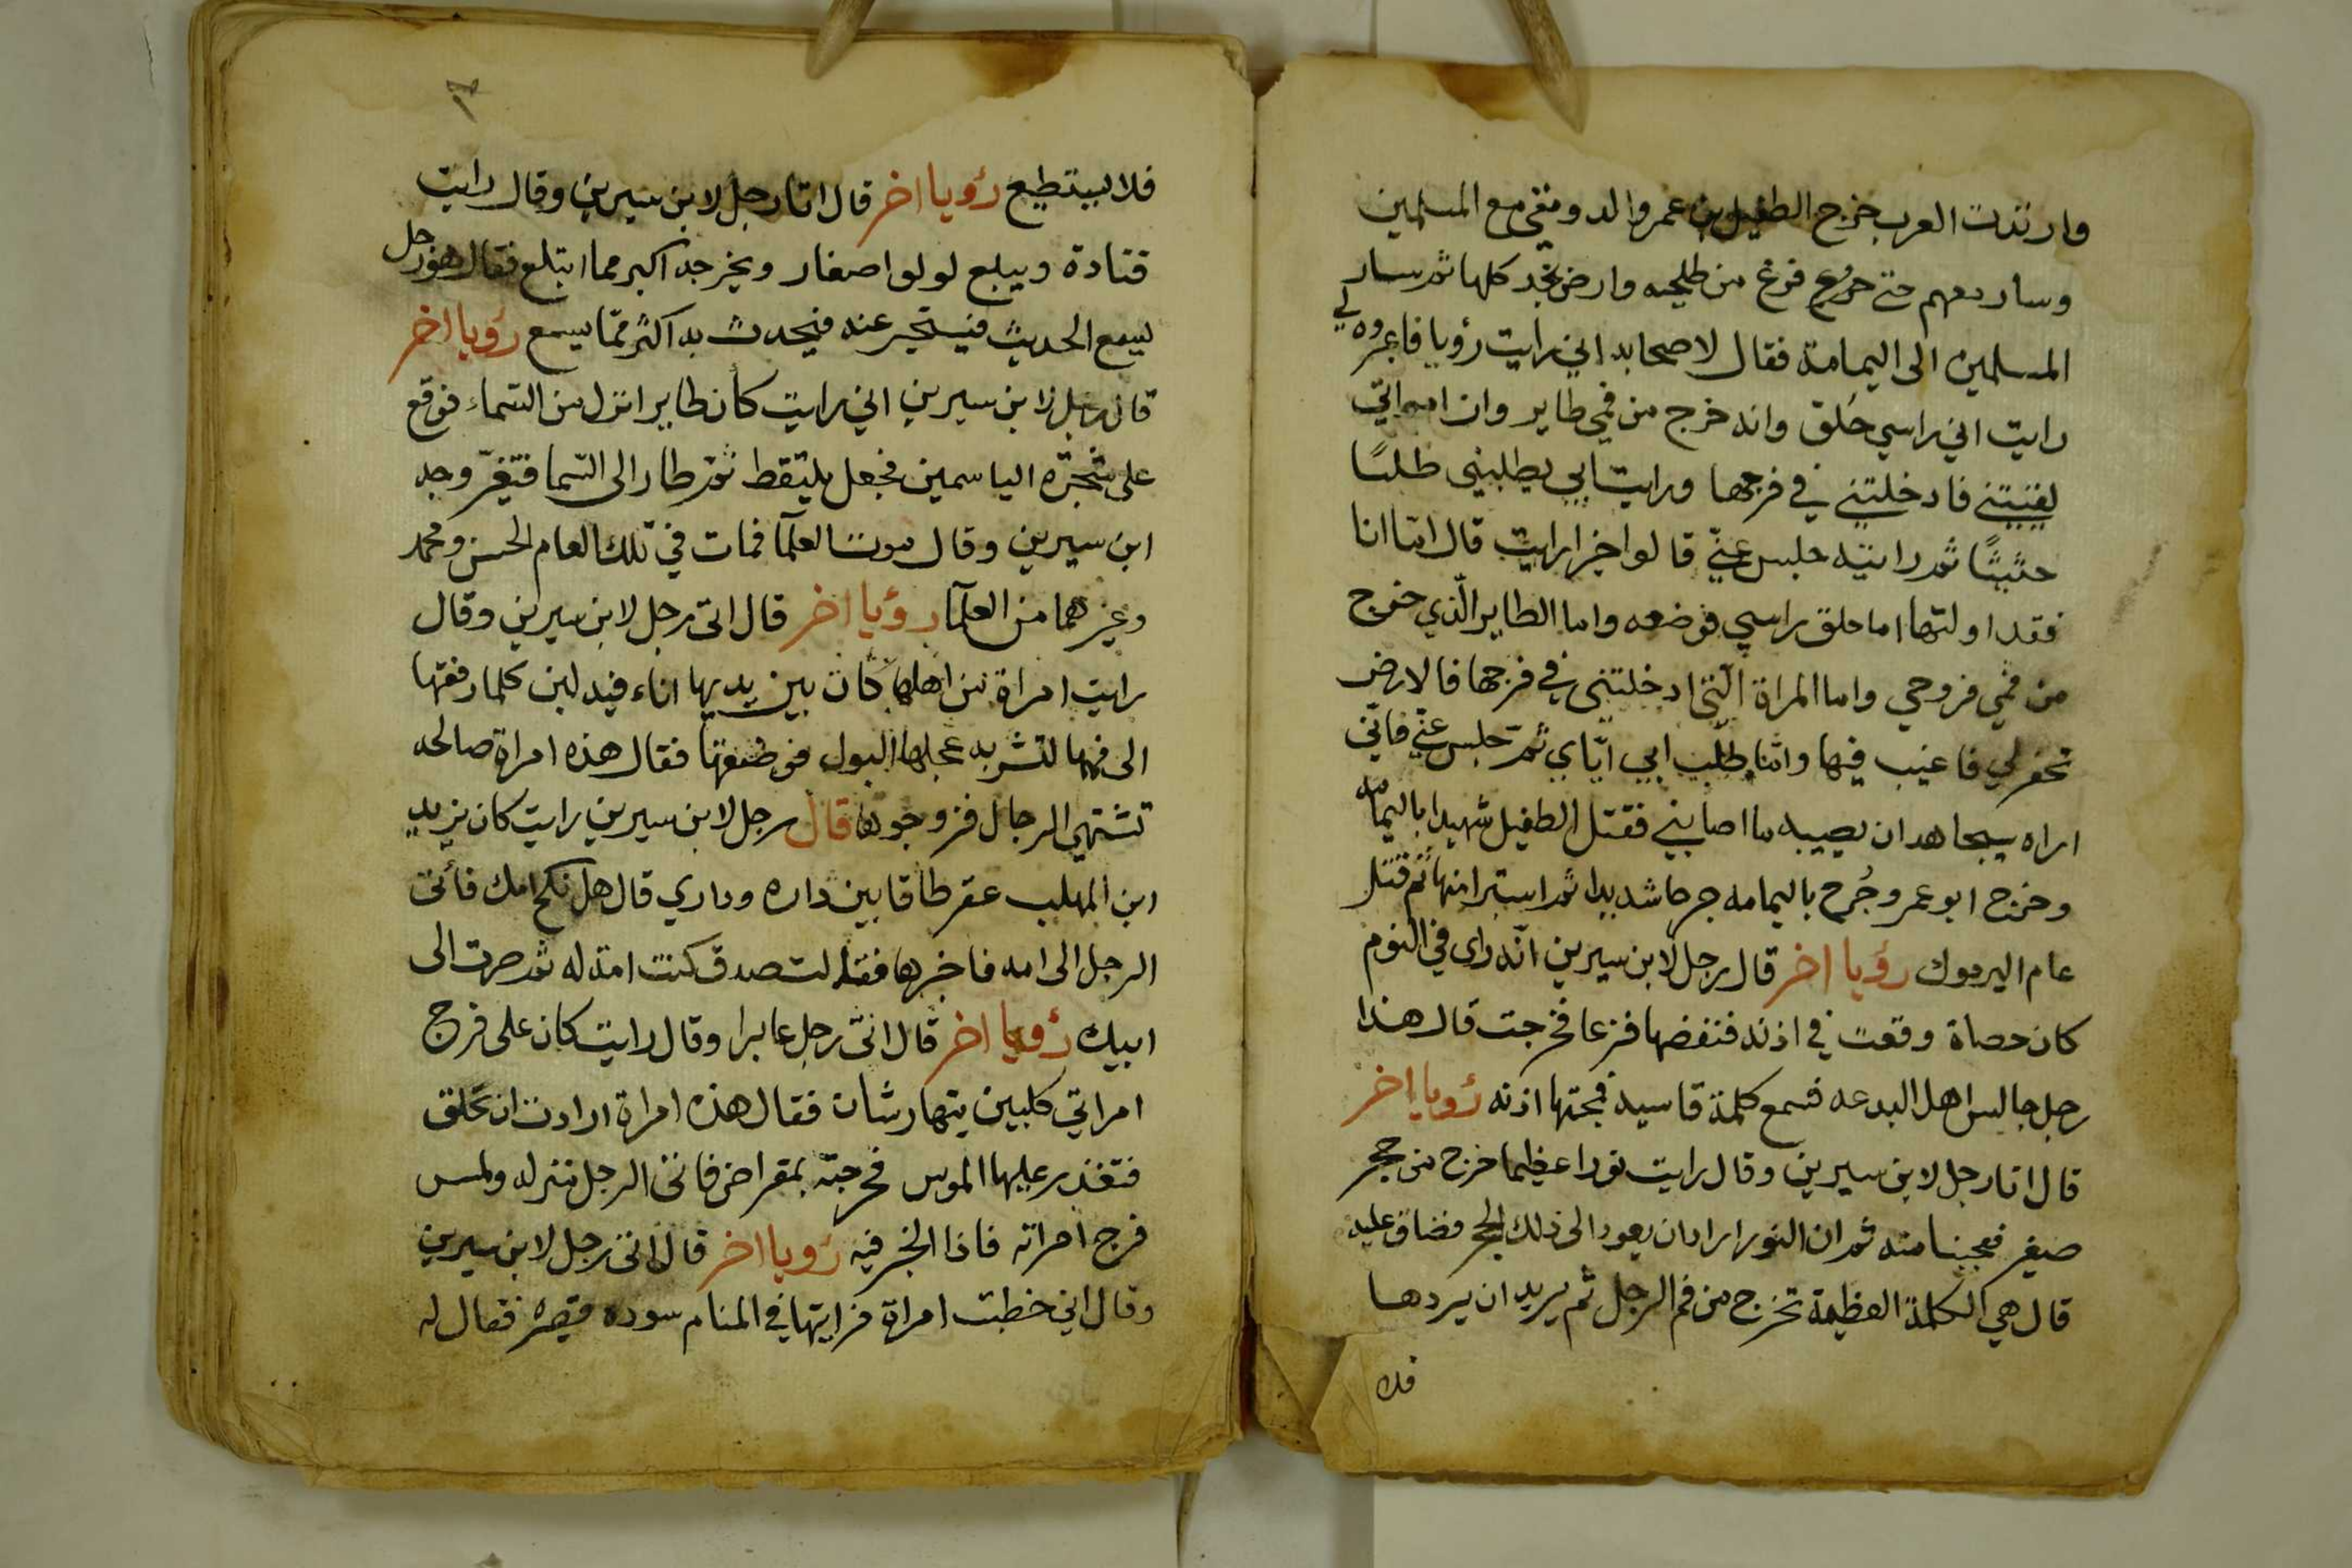 وارتدت العرب خرج الطفيل بن عمرو الدوسي مع المسلمين
وسار معهم حتى فرغ من طليحه وارض نجد كلها ثم سار
المسلمين الى اليمامة فقال لاصحابه اني رايت رؤيا فاعبروه لي
رايت اني راسي حلق وانه خرج من فمي طاير وان امراتي
لقيتني فادخلتني في فرجها ورايت ابي يطلبني طلبًا
حثيثًا ثم رايته حلبس عنيّ قالوا خيرا رايت قال اما انا
فقد اولتها اما حلق راسي فوضعه واما الطاير الذي خرج
من فمي فروحي واما المراة التي ادخلتني في فرجها فالارض
تحفر لي فاغيب فيها واما طلب ابي ايّاي ثمّ حلبس عنّي فانّي
اراه سيجاهد ان يصيبه ما اصابني فقتل الطفيل شهيدا باليمامه
وخرج ابو عمرو جُرح باليمامه جرحا شديدا ثم استبرا منها ثم قتل
عام اليرموك رؤيا اخر قال رجل لابن سيرين انّه راى في النوم
كان حصاة وقعت في اذنه فنفضها فزعا فخرجت قال هذا
رجل جالس اهل البدعه فسمع كلمة قاسية فمجتها اذنه رؤيا اخر
قال اتا رجل لابن سيرين وقال رايت نورا عظيما خرج من حجر
صغير فعجبنا منه ثم ان النور اراد ان يعود الى ذلك الحجر فضاق عليه
قال هي الكلمة العظيمة تخرج من فم الرجل ثم يريد ان يردها
فلا
فلا يستطيع رؤيا اخر قال اتا رجل لابن سيرين وقال رايت
قتادة ويبلع لولوا صغار ويخرجه اكبر مما ابتلع فقال هو رجل
يسمع الحديث فيحدث به اكثر ممّا يسمع رؤيا اخر
قال رجل لابن سيرين اني رايت كان طايرا نزل من السّماء فوقع
على شجرة الياسمين فجعل يلتقط ثم طار الى السّما فتغيّر وجه
ابن سيرين وقال موت العلمآ فمات في تلك العام الحسن ومحمد
وغيرهما من العلمآ رؤيا اخر قال اتى رجل لابن سيرين وقال
رايت امراة من اهلها كان بين يديها اناء فيه لبن كلما رفعتها
الى فمها لتشربه عجلها البول فوضعتها فقال هذه امراة صالحه
تشتهي الرجال فزوجوها قال رجل لابن سيرين رايت كان يزيد
ابن المهلب عقر طاقا بين داره وداري قال هل نكح امك فاتى
الرجل الى امه فاخبرها فقالت صدق كنت امة له ثم صرت الى
ابيك رؤيا اخر قال اتى رجل عابرا وقال رايت كان على فرج
امراتي كلبين يتهارشان فقال هذه امراة ارادت ان تحلق
فتعذر عليها الموس فجرحته بمقراض فاتى الرجل منزله ولمس
فرج امراته فاذا الخبر فيه رؤيا اخر قال اتى رجل لابن سيرين
وقال اني خطبت امراة فرايتها في المنام سوده قصيره فقال له